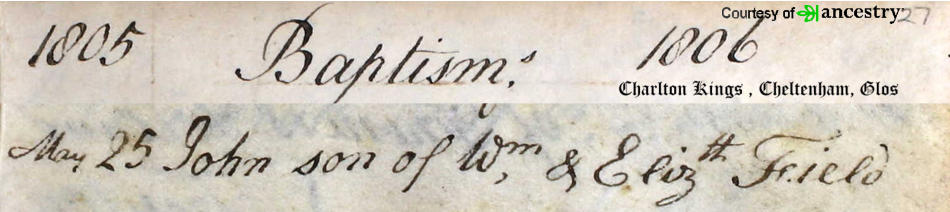 Courtesy of ancestry 27
1805 Baptisms 1806
Charlton Kings , Cheltenham, Glos
May 25 John son of Wm & Elizth Field